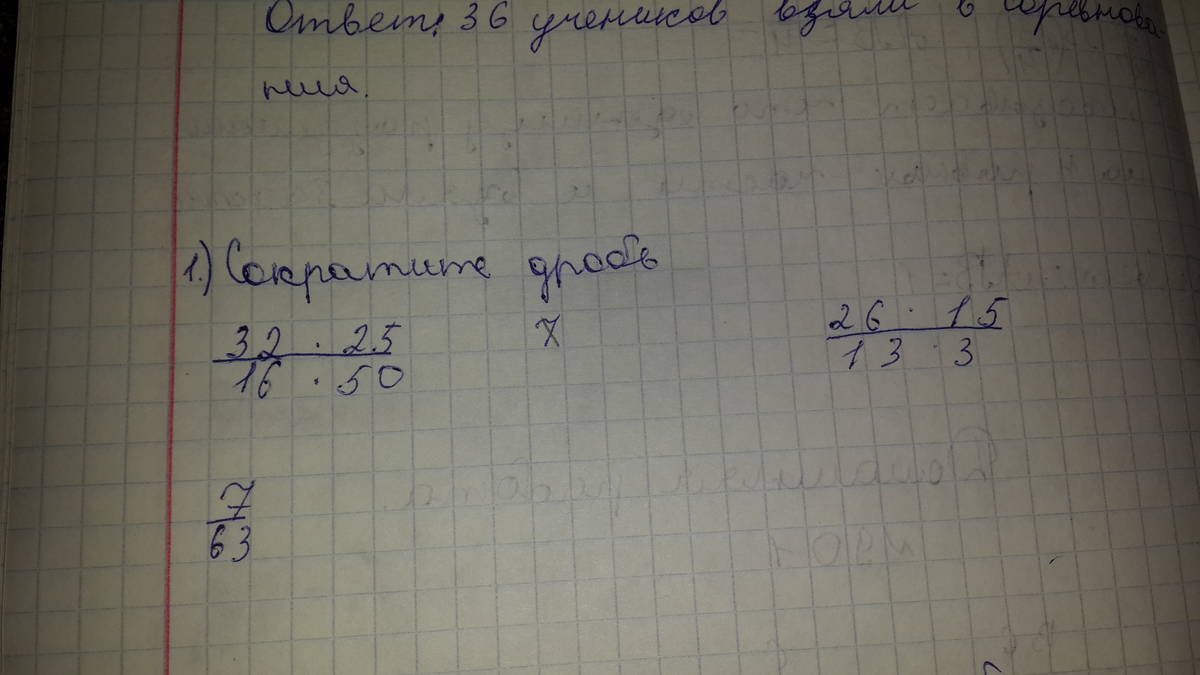 Ответ: 36 учеников взяли в соревнова-
ния.
1.) Сократите дробь
32 · 25
16 · 50
7
26 · 15
13 · 3
7
63